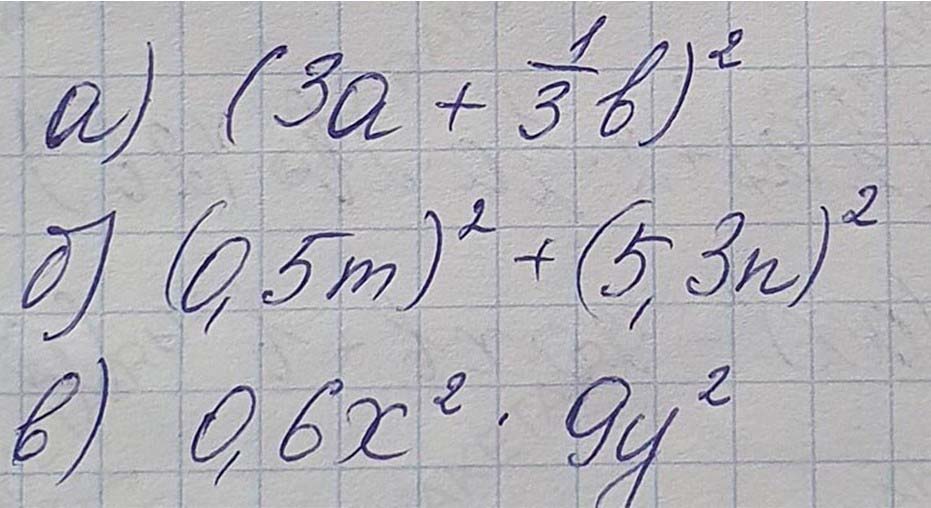 а) (3a + 1/3 b)²
б) (0,5m)² + (5,3n)²
в) 0,6x² · 9y²